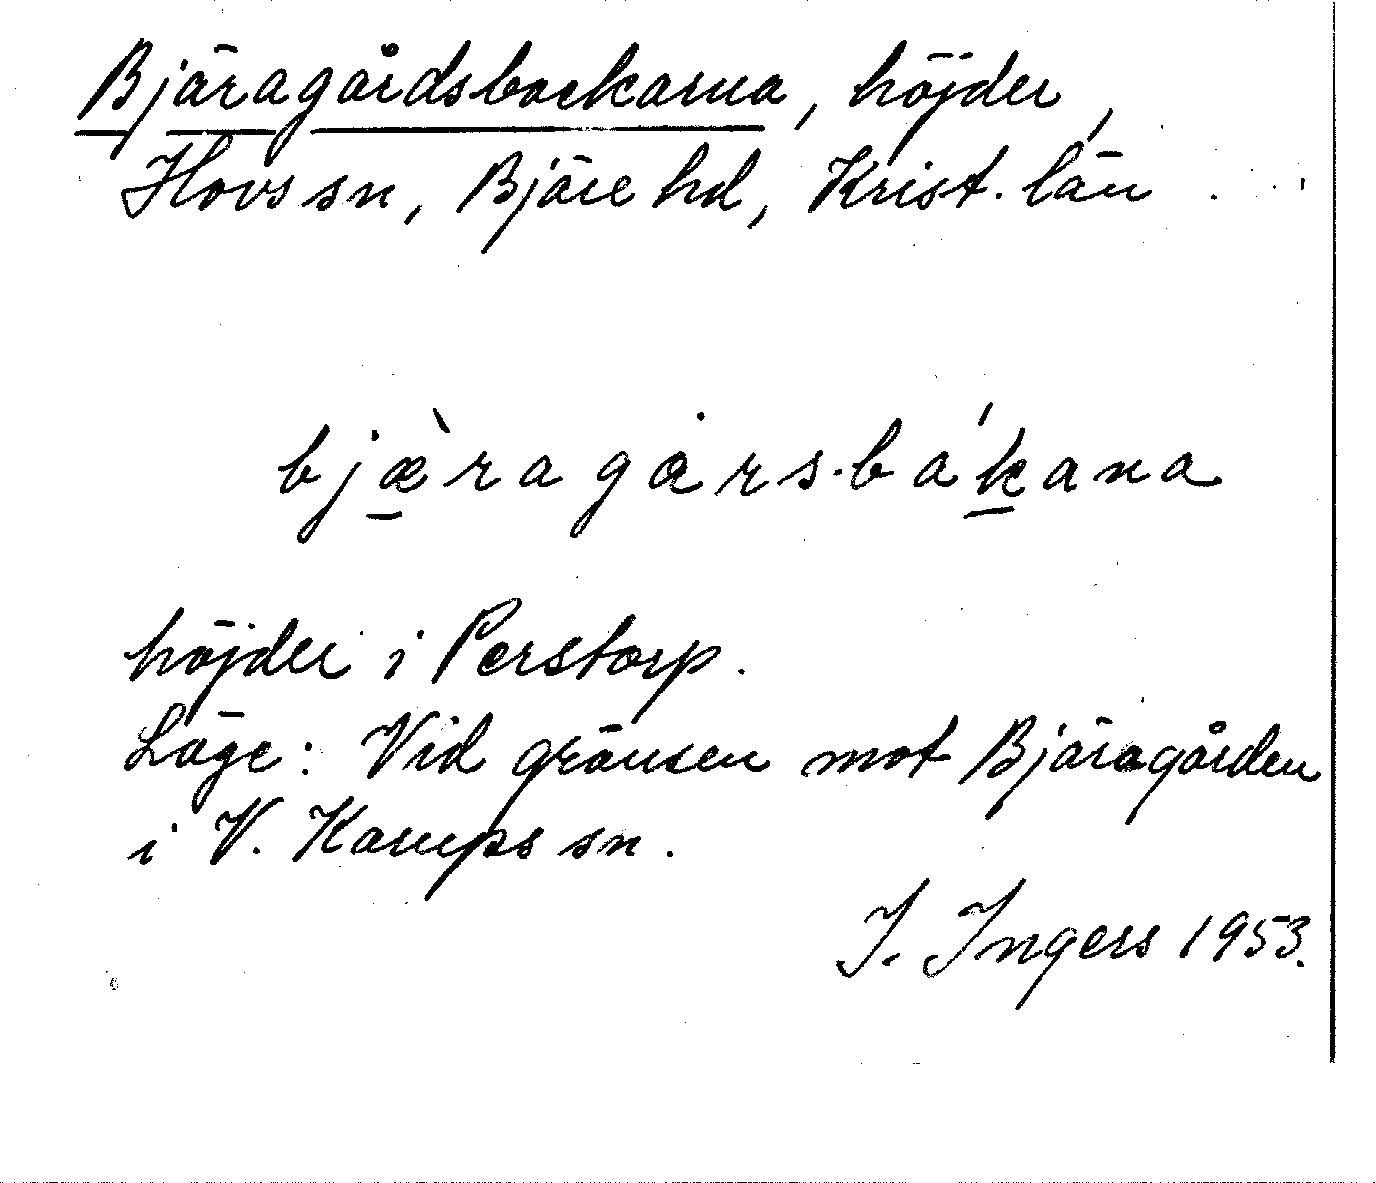 Bjäragårdsbackarna, höjder,
Hovs sn, Bjäre hd, Krist. län
bjæ̀ragȧrs-bák̠ana
höjder i Perstorp.
Läge: Vid gränsen mot Bjäragården
i V. Karups sn.
I. Ingers 1953.